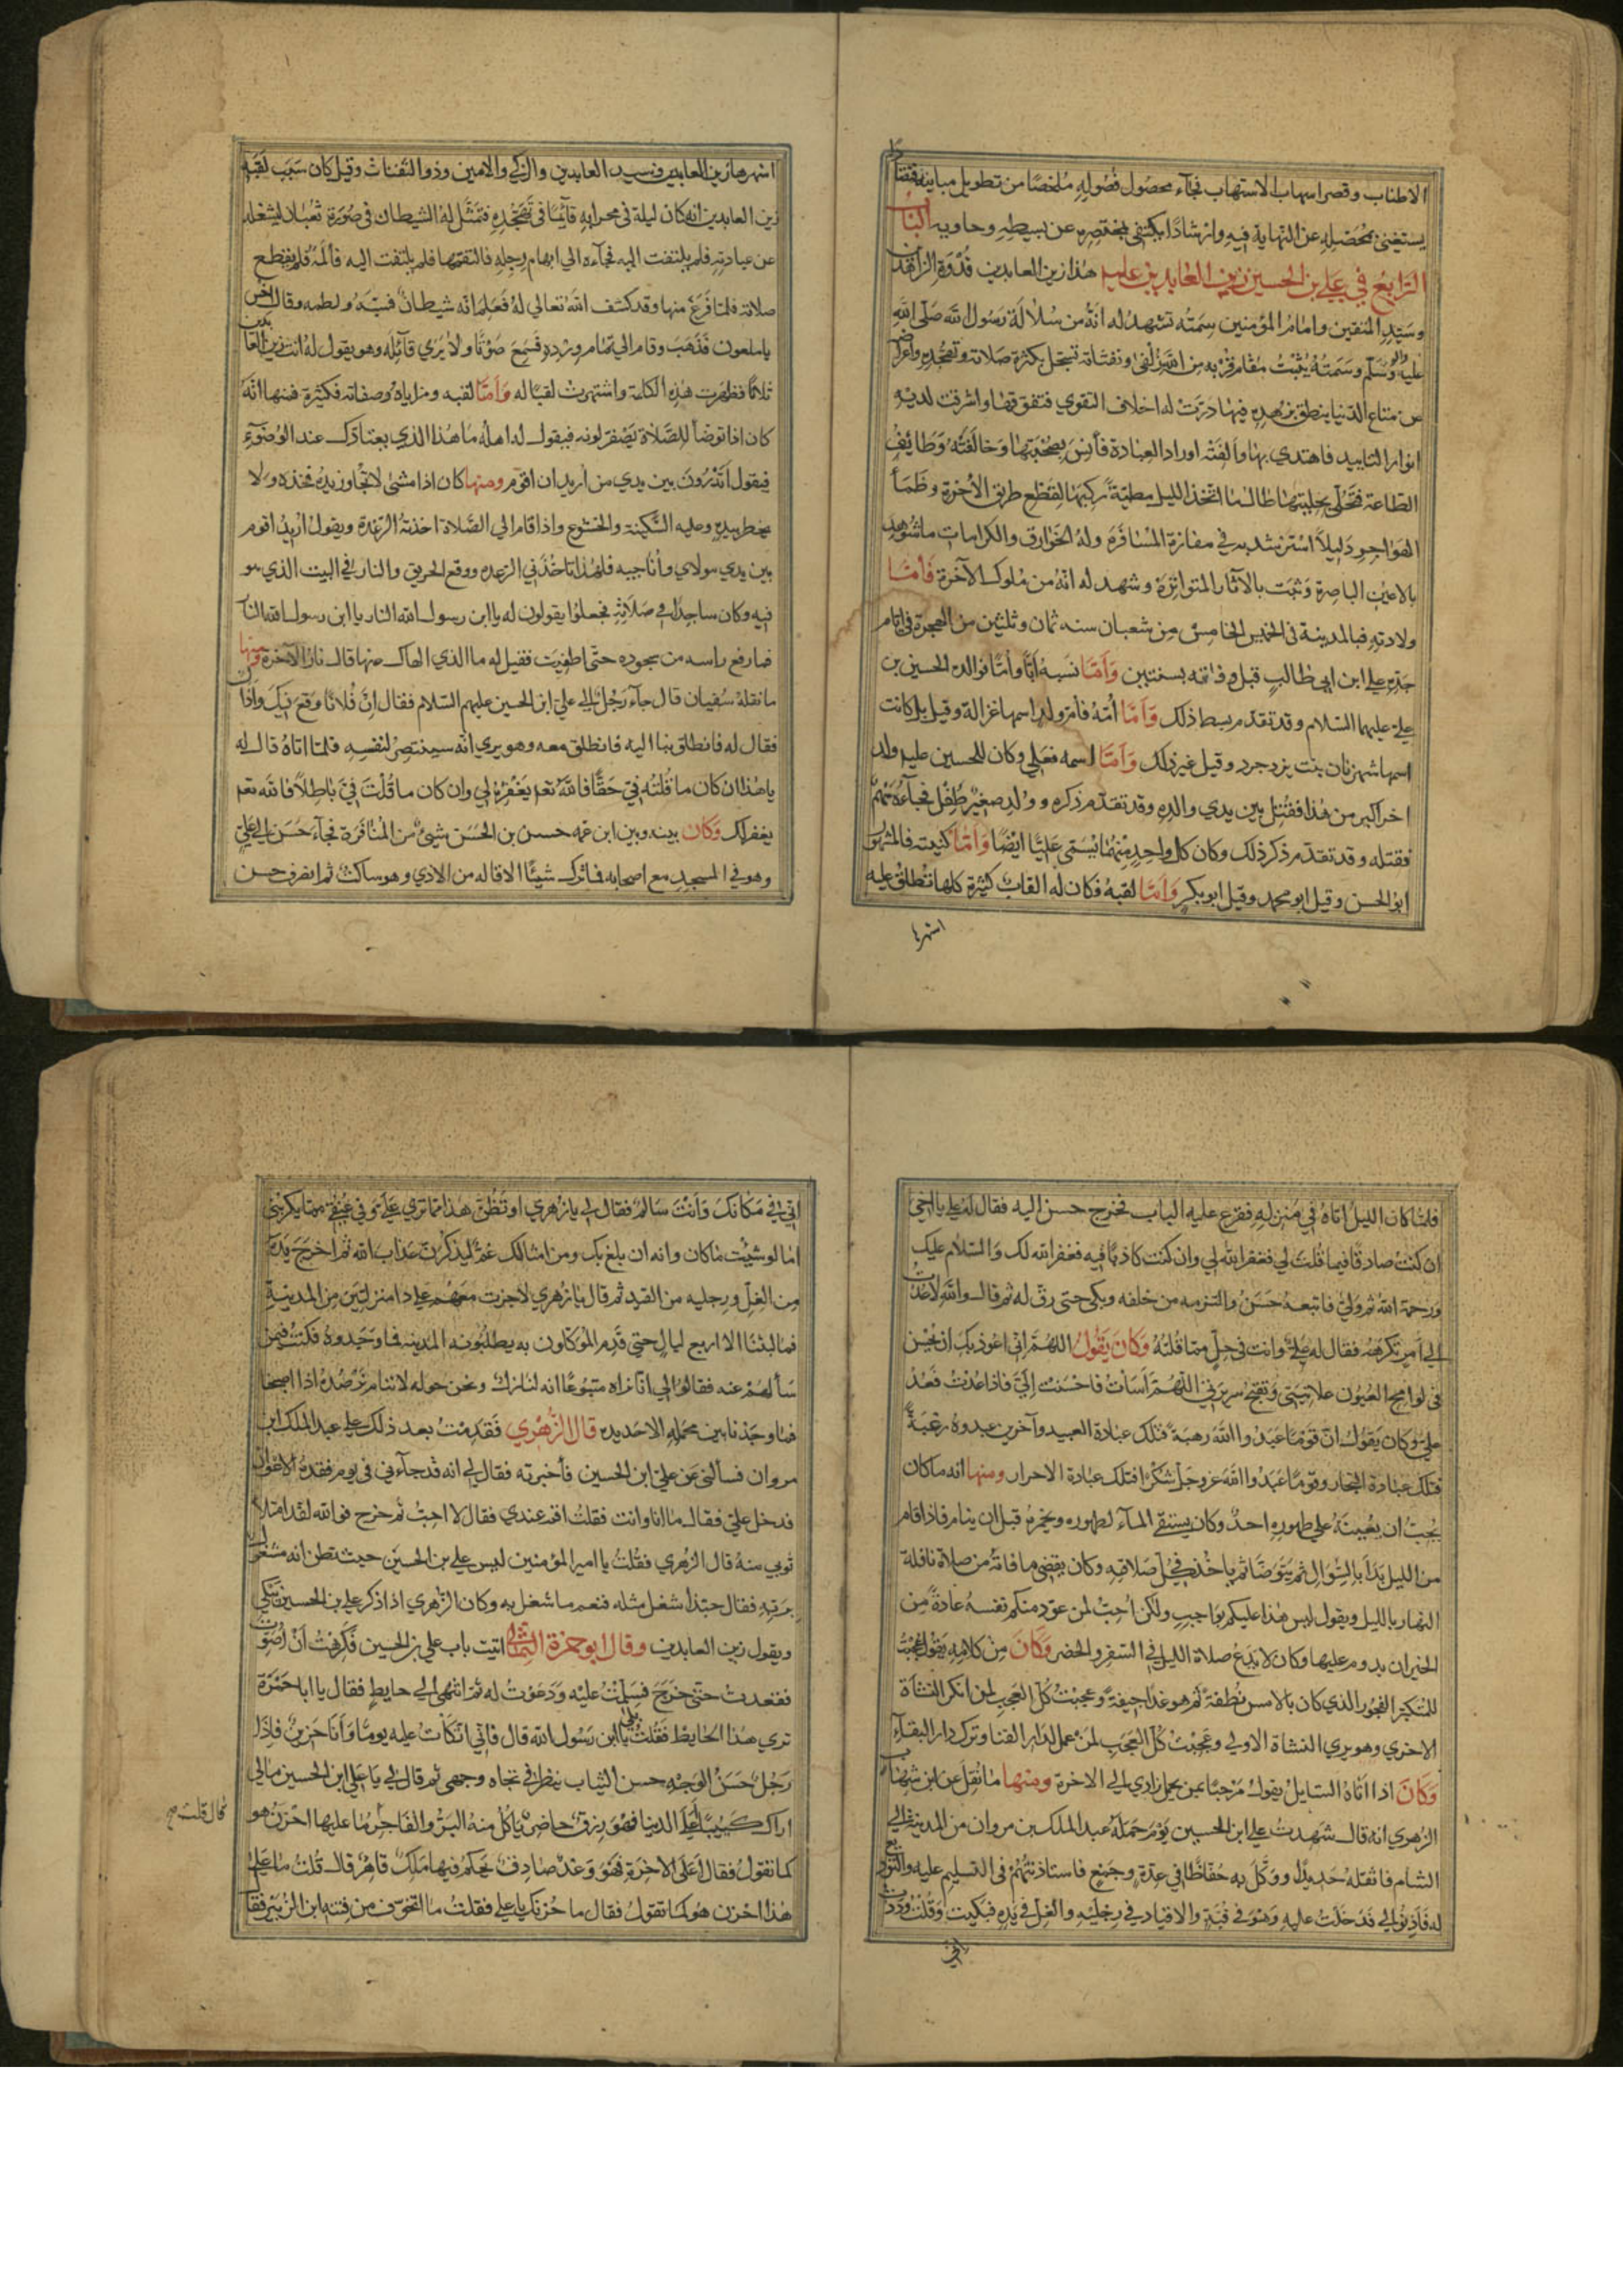 الاطناب وقصر اسهاب الاستهاب فجآء محصول فصُولِهِ مُلخصًا من تطويل مبانيه فقضآ
يستغني بمُحَصَلِهِ عن النهاية فيهِ وارْشادًا يكتفي بمختصِرِه عن بسيطِهِ وحاويه الباب
الرّابعُ في علي بن الحسين زين العابدين عليه هذا زين العابدين قدوَة الزاهدين
وسَيّدِ المتقين وامامُ المؤمنين سِمَتُه تشهدُ له انّهُ من سُلالَة رَسُول الله صَلّى اللهُ
عليه واله وسَلّم وسَمتُهُ يُثبِتُ مَقام قرْبه من اللهِ زلفى وثفناته تسَجّل بكثرة صَلاته وتهجّده واعراضه
عن متاع الدّنيا ينطق بزهدِه فيها دَرَّتْ له اخلاف التقوي فتفوّقها واشرقت لديْهِ
انوار التاييد فاهتدي بها وأَلفَتْه اوراد العِبادة فأنِسَ بصُحْبَتِها وَخالَفَتْهُ وَظايُفُ
الطاعة فتَحَلّى بحليتها طالما اتّخذ الليل مطيّةً ركِبَها لقَطْع طريق الآخرة وظَمَأَ
الهَوَاجِرِ دَليلًا اسْترشد به في مفازة المُسَافَرَه ولهُ الخَوَارق والكرامات ما شُوهِدَ
بالاعين الباصِرة وثبَت بالآثار المتواتِرَة وشهد له انّهُ من مُلوك الآخرة فَأمّا
ولادته فبالمدينة في الخميس الخامس مِن شعبان سنه ثمان وثلثين من الهجرة في ايام
جَدّه علي ابن ابي طالب قبل وفاته بسنتين وَأمّا نسبهُ ابًا وامًا فوالده الحسين بن
علي عليهما السّلام وقد تقدّم بسط ذلك وَأمّا أُمّهُ فأم ولد اسمها غزالة وقيل بل كانت
اسمها شهرنان بنت يزدجرد وقيل غير ذلك وَأمّا اسمه فعَلي وكان للحسين عليه ولد
اخر اكبر من هذا فقُتِل بين يدي والدِه وقد تقدّم ذكره وولد صغير طِفْل فجآءَهُ سَهمٌ
فقتله وقد تقدّم ذكر ذلك وكان كل واحِدٍ منْهُما يُسَمّى عَليًا ايْضًا وأمّا كنيته فالمشهور
ابو الحسن وقيل ابو محمد وقيل ابو بكر وَأمّا لقبهُ فكان له القابٌ كثيرة كلها تُطلقُ عليه
اشهرها
اشهرها زين العابدين وسيد العابدين والزكي والامين وذو الثفنات وقيل كان سَبَب لَقَبِهِ
زين العابدين انه كان ليلة في محرابِهِ قآئِمًا في تَهَجُّدِهِ فتمَثّل لهُ الشيطان في صُورَة ثُعبَان ليشغله
عن عبادته فلم يلتفت اليه فجآءه الي ابهام رِجلِهِ فالتقمَها فلم يلتفت اليه فألمَهُ فلم يقطع
صلاته فلمّا فَرَغَ منها وقد كشف الله تعالي لهُ فَعَلِمَ انّه شيطانٌ فسَبّهُ ولطمه وقال اخس
يا ملعون فَذَهَبَ وقام الي تمام ورْده فسَمِعَ صَوْتًا ولا يري قآئِلَه وهو يقول لهُ انت زين العابدين
ثلاثًا فظهرت هٰذِه الكلمة واشتهرت لقبًا له وَأمّا لقبه ومزاياهُ وصفاته فكثيرة فمنها انّهُ
كان اذا توضأ للصَّلاة يَصْفَرّ لونه فيقول له اهلهُ ما هٰذا الذي يعتادك عند الوُضوءِ
فيقول أَتَدْرُونَ بين يدي من اريد ان اقوم ومنها كان اذا مشى لا تجاوز يدهُ فخذه ولا
يخطر بيدِهِ وعليه السَّكينة والخشوع واذا قام الي الصَّلاة اخذتهُ الرّعْدة ويقول اُريدُ اقوم
بين يدي مولاي وأناجيه فلهٰذا تاخُذني الرّعده ووقع الحريق والنار في البيت الذي هو
فيه وكان ساجِدًا في صَلاتِهِ فجعلوا يقولون له يا ابن رسول الله النار يا ابن رسول الله النار
فما رفع راسه من سجوده حتّى اُطفِيَت فقيل له ما الذي الهاك عنها قال نار الآخرة ومنها
ما نقلهُ سُفيان قال جآء رَجُلٌ الي علي ابن الحسين عليهم السّلام فقال انّ فُلانًا وَقَعَ فيكَ وآذاك
فقال له فانطلق بنا اليه فانطلق معه وهو يري انّه سينتصِرُ لنفسِهِ فلمّا اتاهُ قال له
يا هٰذا ان كان ما قُلتَه فيّ حَقًّا فالله تعم يَغفِرُهُ لي وان كان ما قُلْتَ فيّ بَاطِلًا فالله تعم
يغفر لك وَكَانَ بينه وبين ابن عمه حسن بن الحَسَن شيئٌ من المُنافَرَة فجآءَ حَسَن الي علي
وهو في المسجد مع اصحابه فما ترك شيئًا الا قاله من الاذي وهو ساكت ثم انصرف حسن
فلمّا كان الليلُ اتاهُ في مَنزلِهِ فقرع عليه الباب فخرج حسن اليه فقال له علي يا اخي
ان كنتَ صادقًا فيما قُلتَ لي فغفر الله لي وان كنت كاذبًا فيه فغفر الله لك وَالسّلام عليك
ورَحمة الله ثم ولّي فاتبعهُ حَسَنٌ والتزمه من خلفه وبكى حتى رقّ له ثم قال والله لا عُدتُ
الي اَمرٍ تكرَهُه فقال له عليّ وانت في حلٍّ ممّا قلتَهُ وَكانَ يَقُولُ اللهُمّ انّي اعوذ بكَ ان تُحسِن
في لوامح العُيُون علانيَتي وتقبحُ سريرَتي اللّهُمّ كما اَسَأتُ فاحسَنتَ اليّ فاذا عُدتُ فَعُدْ
عليّ وكان يَقولُ انّ قَوْمًا عَبَدُوا اللهَ رهبَةً فتلك عبادَة العبيد وآخرين عبدوهُ رغبَةً
فتلك عبَادة التجار وقومًا عَبَدُوا اللهَ عز وجلّ شكْرًا فتلك عبادة الاحرار ومنها انه ما كان
يُحِبّ ان يُعينَهُ علي طهوره احدٌ وكان يستقي المآء لطهوره ويخمرهُ قبل ان ينام فاذا قام
من الليل بَدَأ بِالسِّواكِ ثم يَتَوَضّأ ثم ياخُذ في صَلاته وكان يقضي ما فاتهُ من صلاة نافلة
النهار بالليل ويقول ليس هٰذا عليكم بوَاجبٍ ولٰكن اُحِبّ لمن عوّد منكم نفسهُ عادةً مِن
الخير ان يدوم عليها وكان لا يدَع صلاة الليل في السّفر والحضر وَكَانَ مِن كلامِهِ يقول عجبْتُ
للمتكبّر الفخور الذي كان بالامس نُطفةً ثم هو غدًا جيفةً وعجبْتُ كُلّ العَجَب لمن انكر النشأة
الاخري وهو يري النشاة الاولي وعَجبْتُ كُلّ العَجَبِ لمَنْ عمل لدَار الفنا وترك دار البقآء
وَكَانَ اذا اتاهُ السّايلُ يقولُ مَرْحَبًا بمن يحمل زادي الي الاخرة ومنها ما نُقِلَ عن ابن شهاب
الزهري انه قال شَهدتُ علي ابن الحسين يَوْمَ حَمَلَهُ عبد الملك بن مروان من المدينة الي
الشام فاثقلهُ حَديدًا ووكّل بِهِ حُفّاظًا في عِدّةٍ وجَمعٍ فاستاذنتُهُم في التسليم عليه والتوديع
له فَأَذِنوا لي فدَخلتُ عليه وَهوَ في قُبّةٍ والاقياد في رِجلَيْهِ والغِلّ في يَدِه فبكيت وَقُلتُ ودَدتُ
انّي
انّي في مَكانكَ وَأنتَ سَالمٌ فقال لي يا زهري أوَ تَظُنّ هذا ممّا تري عَليّ وفي عُنُقي مما يكربني
اما لو شئت ما كان وانه ان بلغ بك ومن امثالك غمٌ ليذكرن عَذابَ الله ثم اخرَجَ يَدَهُ
مِنَ الغلّ ورجليه من القيد ثم قال يا زهري لا جزت معَهُم علي ذا منزلتين مِن المدينةِ
فما لبثنا الا اربع ليالٍ حتي قدِم المُوكّلون به يطلبُونه المدينه فما وَجَدوهُ فكنتُ فيمَن
سَألهُمْ عنه فقالوا لي انّا نراه متبُوعًا انه لنازلٌ ونحن حوله لا ننام نَرْصُدُهُ اذا اصبحنا
فما وجدنا بين محمله الا حديده قال الزُّهري فَقَدِمتُ بعد ذلك علي عبد الملك ابن
مروان فسألني عن علي ابن الحسين فأخبرته فقال لي انه قد جآءني في يوم فقده الاعوان
فدخل عليّ فقال ما انا وانت فقلتُ اقم عندي فقال لا احبُّ ثم خرج فوالله لقد امتلأ
ثوبي منهُ قال الزُهري فقُلتُ يا امير المؤمنين ليس علي بن الحسين حيث تظن انه مشغولٌ
بربّهِ فقال حبّذا شغل مثله فنعم ما شغل به وكان الزُّهري اذا ذكر علي بن الحسين يَبكي
ويقول زين العابدين وقال ابو حمزة الثمالي اتيت باب علي بن الحسين فكرِهتُ أنْ اُصَوّتَ
فقعدتُ حتّى خرَجَ فسَلّمْتُ عليْه وَدَعَوتُ له ثم انتهى الي حايطٍ فقال يا ابا حَمْزة
تري هٰذا الحَايِطَ فقُلتُ بلى يا ابن رَسُول الله قال فانّي اتّكأتُ عليه يومًا وَأنا حَزِينٌ فاذا
رَجُلٌ حَسَنُ الوَجهِ حسن الثياب ينظر في تجاه وجهي ثم قال لي يَا علي ابن الحسين ما لي
اراك كَئيبًا أَعلَى الدنيا فهُوَ رزق حاضِرٌ يأكُلُ منهُ البَرّ والفَاجِرُ ما عليها احزن هو
قال قلت صح
كما تقولُ فقال أعَلَى الآخرة فهُوَ وَعْدٌ صَادِقٌ يَحكم فيها مَلِكٌ قاهرٌ قال قُلتُ ما علي
هٰذا احزن هُو كما تقولُ فقال ما حُزنك يا علي فقلتُ ما اتخوّف من فتنه ابن الزُبَيْر فقال